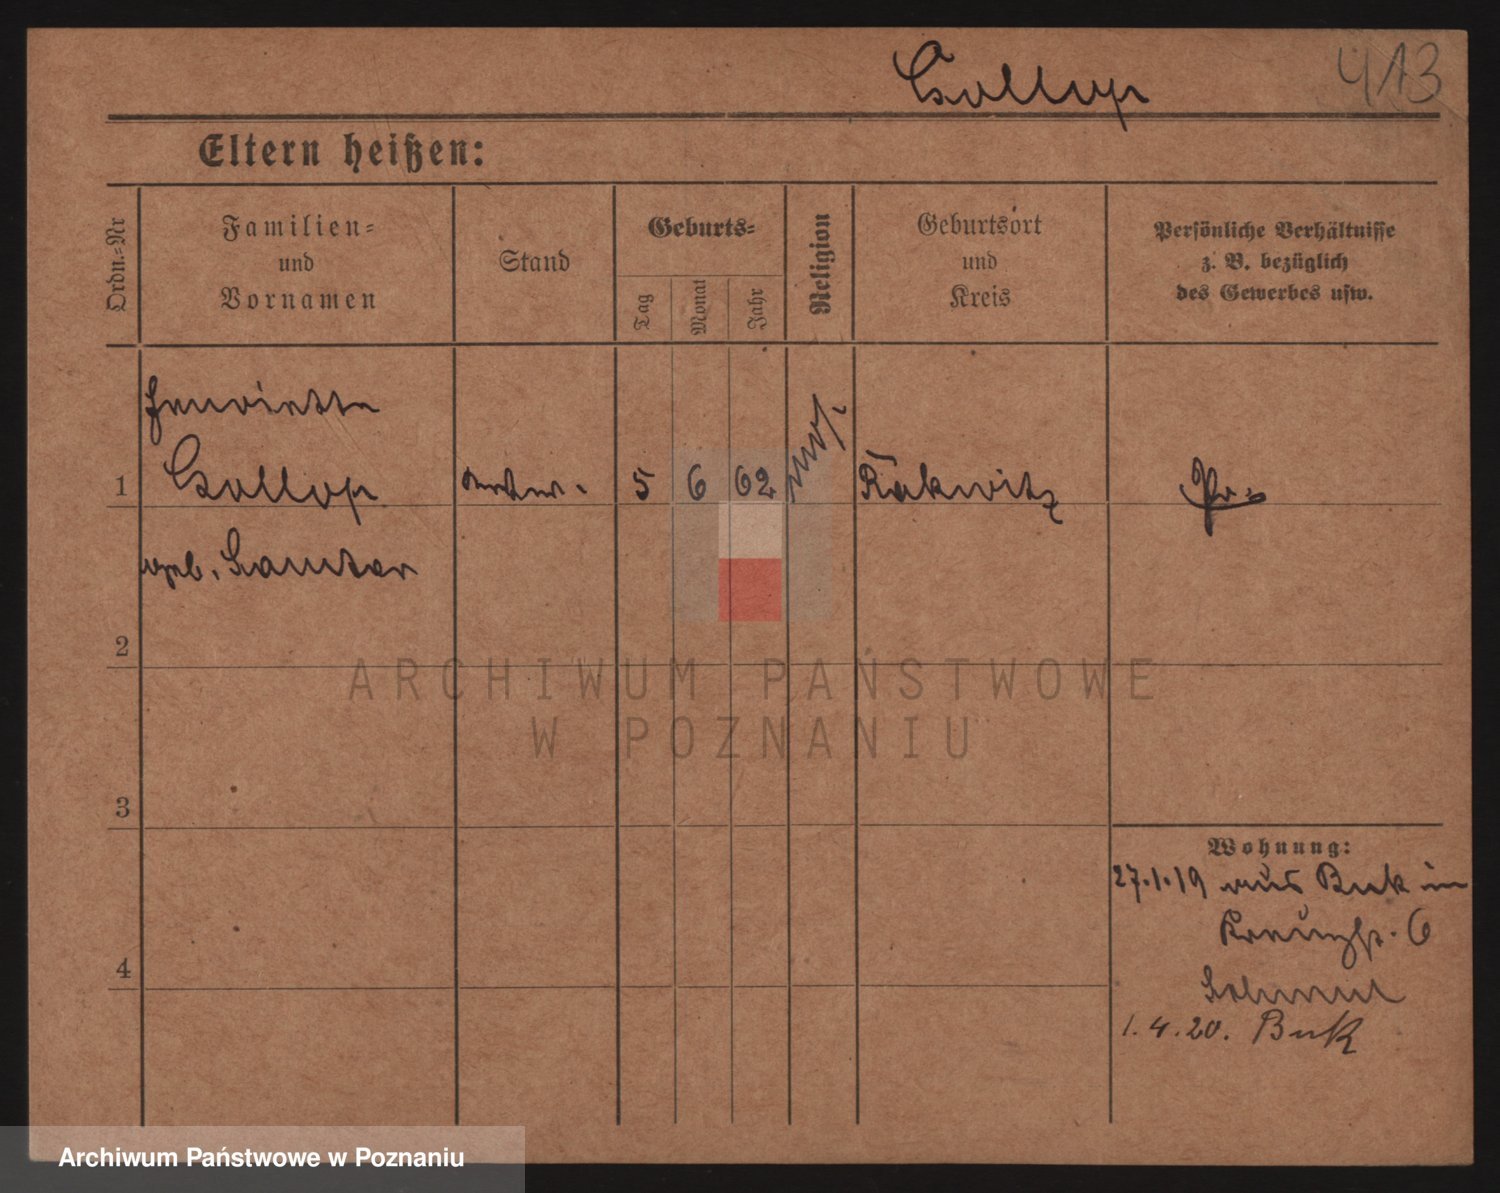 Gollop 413
Eltern heißen:
Ordn.-Nr
Familien-
und
Vornamen
Stand
Geburts-
Tag
Monat
Jahr
Religion
Geburtsort
und
Kreis
Persönliche Verhältnisse
z. B. bezüglich
des Gewerbes usw.
Henriette
1 Gollop 5 6 62 mos. Rakwitz Pr.
geb. Cantor
2
ARCHIWUM PAŃSTWOWE
W POZNANIU
3
Wohnung:
27.1.19 aus Buk in
Kreuzstr. 6
4
1.4.20. Buk
Archiwum Państwowe w Poznaniu